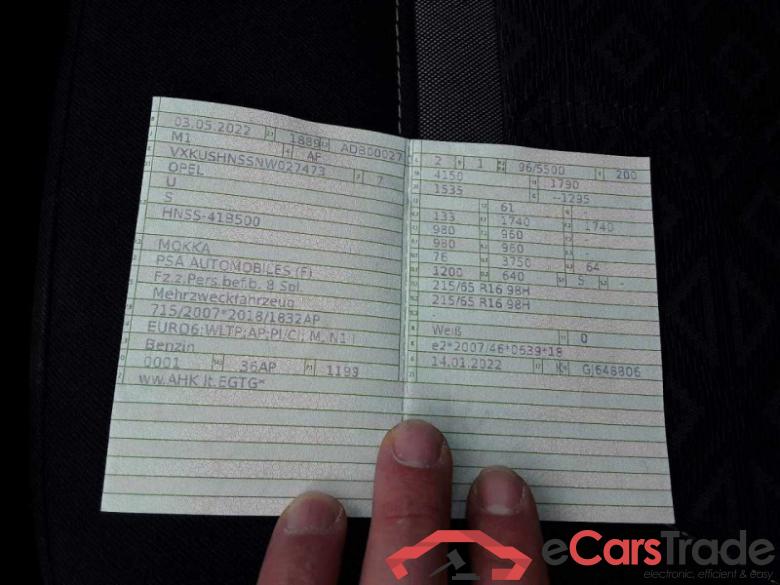 03.05.2022 1889 ADB00027
M1 AF
VXKUSHNSSNW027473 7
OPEL
U
S
HNSS-41B500
MOKKA
PSA AUTOMOBILES (F)
Fz.z.Pers.bef.b. 8 Spl.
Mehrzweckfahrzeug
715/2007*2018/1832AP
EURO6;WLTP;AP;PI/CI; M, N1 I
Benzin
0001 36AP 1199
ww.AHK lt.EGTG*
2 1 96/5500 200
4150 1790
1535 --1295
61 -
133 1740 1740
980 960 -
980 960 -
76 3750 64
1200 640 5 -
215/65 R16 98H
215/65 R16 98H
Weiß 0
e2*2007/46*0639*18
14.01.2022 K GJ648806
eCarsTrade
electronic, efficient & easy